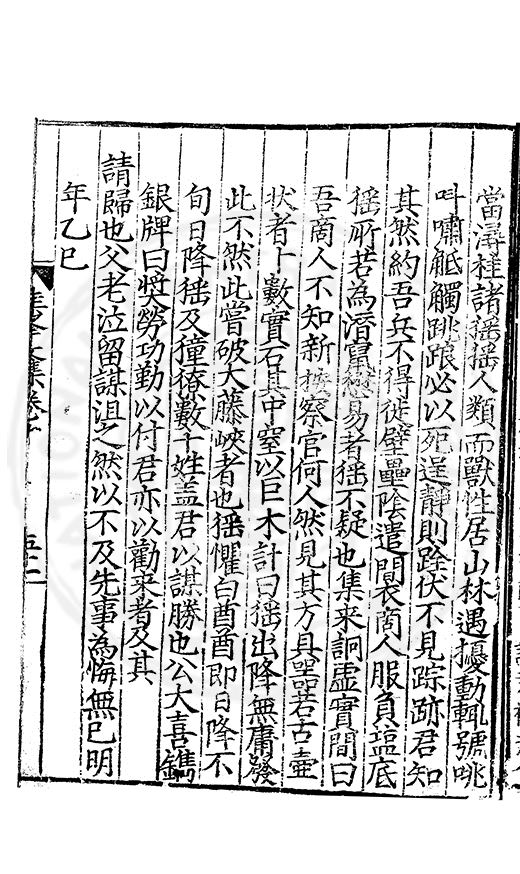 當潯桂諸猺猺人類而獸性居山林遇擾動輒號咷
呌嘯觝觸跳踉必以死逞靜則踡伏不見踪跡君知
其然約吾兵不得徙壁壘陰遣間裝商人服負塩底
猺所若為濳竄懋易者猺不疑也集来詗虛實間曰
吾商人不知新按察官何人然見其方具器若舌壷
狀者十數實石其中窒以巨木計曰猺出降無庸發
此不然此嘗破大藤峽者也猺懼白酋酋即日降不
旬日降猺及獞獠數十姓盖君以謀勝也公大喜鐫
銀牌曰奬勞功勤以付君亦以勸来者及其
請歸也父老泣留謀沮之然以不及先事為悔無已明
年乙巳
文集卷
五十二